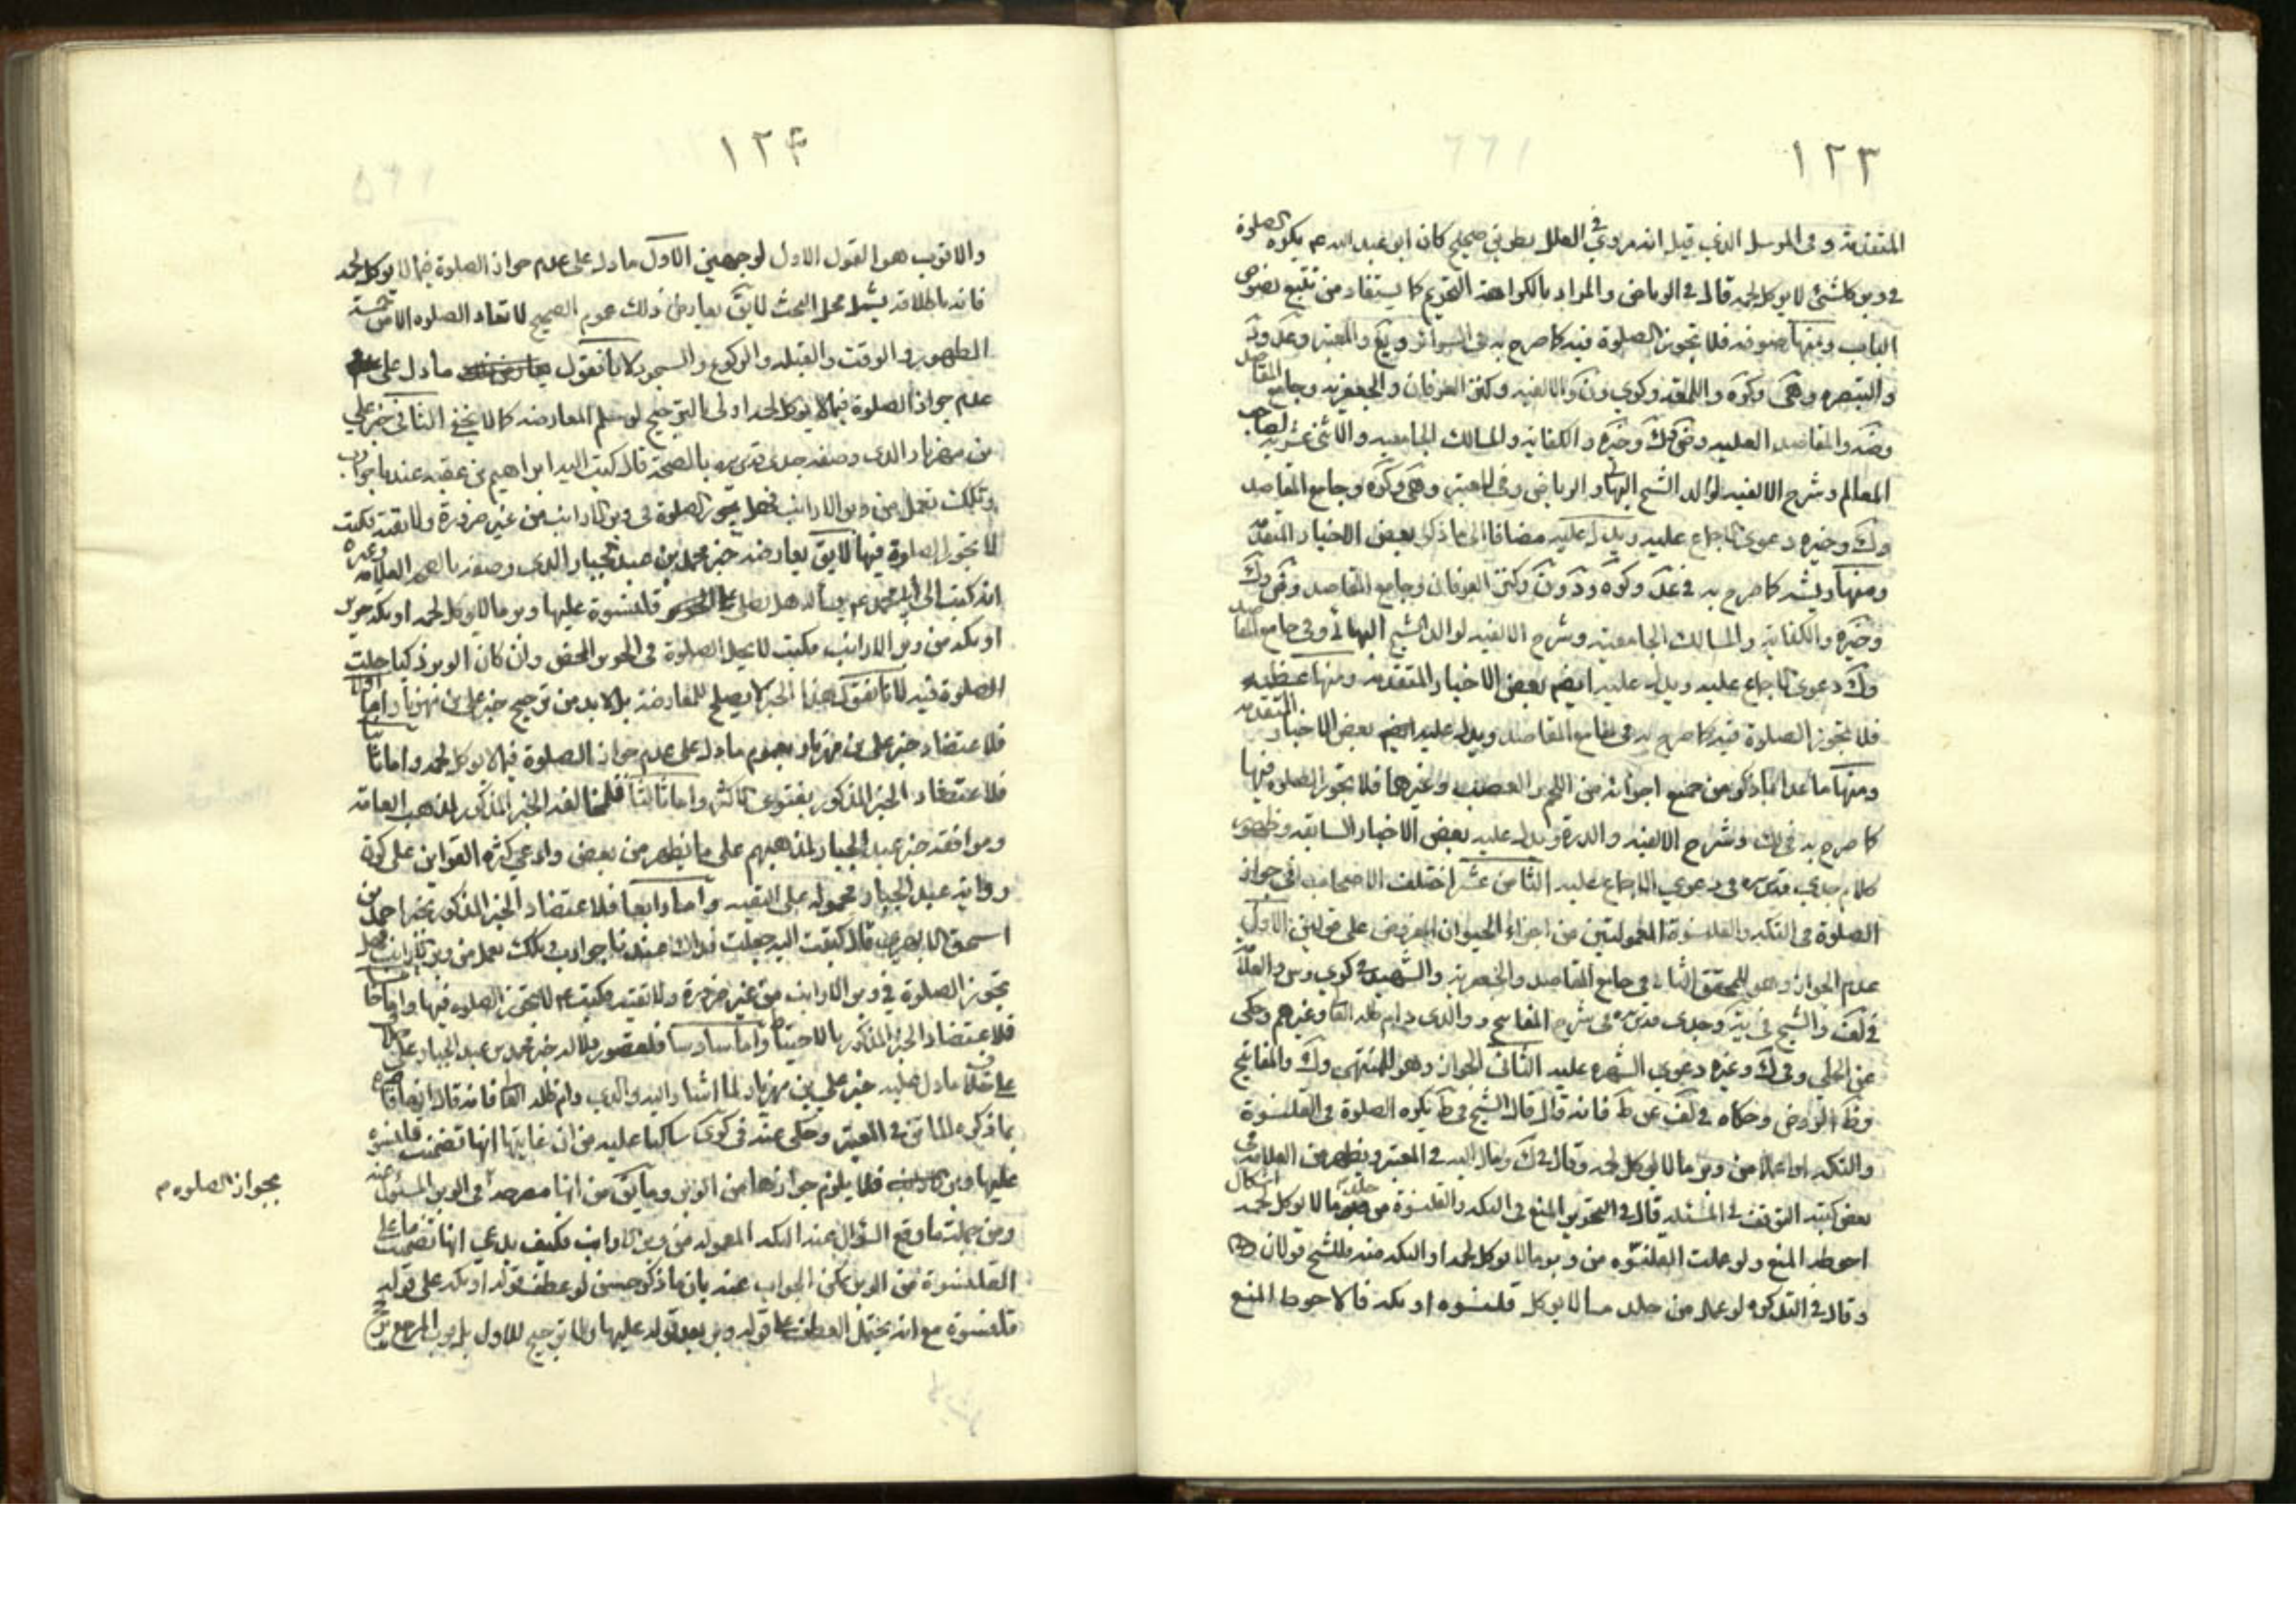 ١٢٣
المتقدمة وفى المرسل الذى قيل انه مروى فى العلل بطريق صحيح كان ابو عبد الله ع يكره الصلوة
فى وبر كل شئ لا يوكل لحمه قال فى الرياض والمراد بالكراهة التحريم كما يستفاد من تتبع نصوص
الباب ومنها صوفه فلا تجوز الصلوة فيه كما صرح به فى السرائر ويع والمعتبر وعد ود
والتبصره وهى وكره واللمعه وكوى ون والالفيه وكنز العرفان والجعفريه وجامع المقاصد
وضه والمقاصد العليه وك وخيره والكفاية والمسالك الجامعيه والاثنى عشريه لصاحب
المعالم وشرح الالفيه لوالد الشيخ البهائى والرياض وفى المعتبر وهى وكره وجامع المقاصد
وك وخيره دعوى الاجماع عليه ويدل عليه مضافا الى ما ذكر بعض الاخبار المتقدمة
ومنها ريشه كما صرح به فى عد وكره ود ون وكنز العرفان وجامع المقاصد وك
وخيره والكفاية والمسالك الجامعيه وشرح الالفيه لوالد الشيخ البهائى وفى جامع المقاصد
وك دعوى الاجماع عليه ويدل عليه ايضم بعض الاخبار المتقدمه ومنها عظمه
فلا تجوز الصلوة فيه كما صرح به فى جامع المقاصد ويدل عليه ايضم بعض الاخبار المتقدمه
ومنها ما عدا ما ذكر من جميع اجزائه من اللحم والعصب وغيرها فلا تجوز الصلوة فيها
كما صرح به فى ك وشرح الالفيه والدرة ويدل عليه بعض الاخبار السابقه وخصوص
كلام جدى قدس سره فى دعوى الاجماع عليه الثامن عشر اختلف الاصحاب فى جواز
الصلوة فى التكه والقلنسوة المعمولتين من اجزاء الحيوان المفروض على قولين الاول
عدم الجواز وهو للمحقق الثانى فى جامع المقاصد والجعفريه والشهيد فى كوى وس والعلامة
فى لف والشيخ فى يه وجدى قدس سره فى شرح المفاتيح ووالدى دام ظله العا وغيرهم وحكى
عن الحلى وفى ك وغيره دعوى الشهره عليه الثانى الجواز وهو للمنتهى وك والمفاتيح
وحكاه فى لف عن ط فانه قال قال الشيخ فى ط يكره الصلوة فى القلنسوة
والتكه اذا عملا من وبر ما لا يوكل لحمه وقال فى ك ومال اليه فى المعتبر ويظهر من العلامة فى
بعض كتبه التوقف فى المسئله قال فى التحرير المنع فى التكه والقلنسوة من جلد ما لا يوكل لحمه اشكال
احوطه المنع ولو عملت القلنسوه من وبر ما لا يوكل لحمه او التكه منه فللشيخ قولان
وقال فى التذكره لو عمل من جلد ما لا يوكل قلنسوه او تكه فالاحوط المنع
١٢۴
والاقرب هو القول الاول لوجهين الاول ما دل على عدم جواز الصلوة فيما لا يوكل لحمه
فانه باطلاقه يشمل محل البحث لا يق يعارض ذلك عموم الصحيح لا تعاد الصلوه الا من خمسة
الطهور والوقت والقبله والركوع والسجود لانا نقول ما دل على
عدم جواز الصلوة فيما لا يوكل لحمه اولى بالترجيح لو سلم المعارضه كما لا يخفى الثانى خبر على
بن مهزيار الذى وصفه جدى قدس سره بالصحة قال كتبت اليه ابراهيم بن عقبه عندنا جوارب
وتكك تعمل من وبر الارانب فهل تجوز الصلوة فى وبر الارانب من غير ضرورة ولا تقية فكتب
لا تجوز الصلوة فيها لا يق يعارضه خبر محمد بن عبد الجبار الذى وصفه بالصحه العلامة وغيره
انه كتب الى ابى محمد ع يسأله هل يصلى قلنسوة عليها وبر ما لا يوكل لحمه او تكه حرير
او تكه من وبر الارانب فكتب لا تحل الصلوة فى الحرير المحض وان كان الوبر ذكيا حلت
الصلوة فيه لانا نقول هذا الخبر لا يصلح للمعارضة بل لا بد من ترجيح خبر على بن مهزيار اما اولا
فلاعتضاد خبر على بن مهزيار بعموم ما دل على عدم جواز الصلوة فيما لا يوكل لحمه واما ثانيا
فلاعتضاد الخبر المذكور بفتوى الاكثر واما ثالثا فلمخالفة الخبر المذكور لمذهب العامه
وموافقة خبر عبد الجبار لمذهبهم على ما يظهر من بعض وادعى كثره القراين على كون
رواية عبد الجبار محموله على التقيه واما رابعا فلاعتضاد الخبر المذكور بخبر احمد بن
اسحق الابهرى قال كتبت اليه جعلت فداك عندنا جوارب وتكك تعمل من وبر الارانب فهل
تجوز الصلوة فى وبر الارانب من غير ضرورة ولا تقيه فكتب ع لا تجوز الصلوه فيها واما خامسا
فلاعتضاد الخبر المذكور بالاحتياط واما سادسا فلقصور دلالة خبر محمد بن عبد الجبار على
خلاف ما دل عليه خبر على بن مهزيار لما اشار اليه والدى دام ظله العا فانه قال
بما ذكره الماتن فى المعتبر وحكى عنه فى كوى ساكتا عليه من ان غايتها انها تضمنت قلنسوه
عليها وبر فلا يلزم جوازها من الوبر وما يق من انها مصرحه فى الوبر المسئول عنه
ومن جملت ما وقع السؤال عنه التكه المعموله من وبر الارانب فكيف يدعى انها تضمنت ما على
القلنسوة من الوبر يمكن الجواب عنه بان ما ذكر حسن لو عطف قوله او تكه على قوله
قلنسوة مع انه يحتمل العطف على قوله وبر بعد قوله عليها ولا ترجيح للاول بل
بجواز الصلوه م